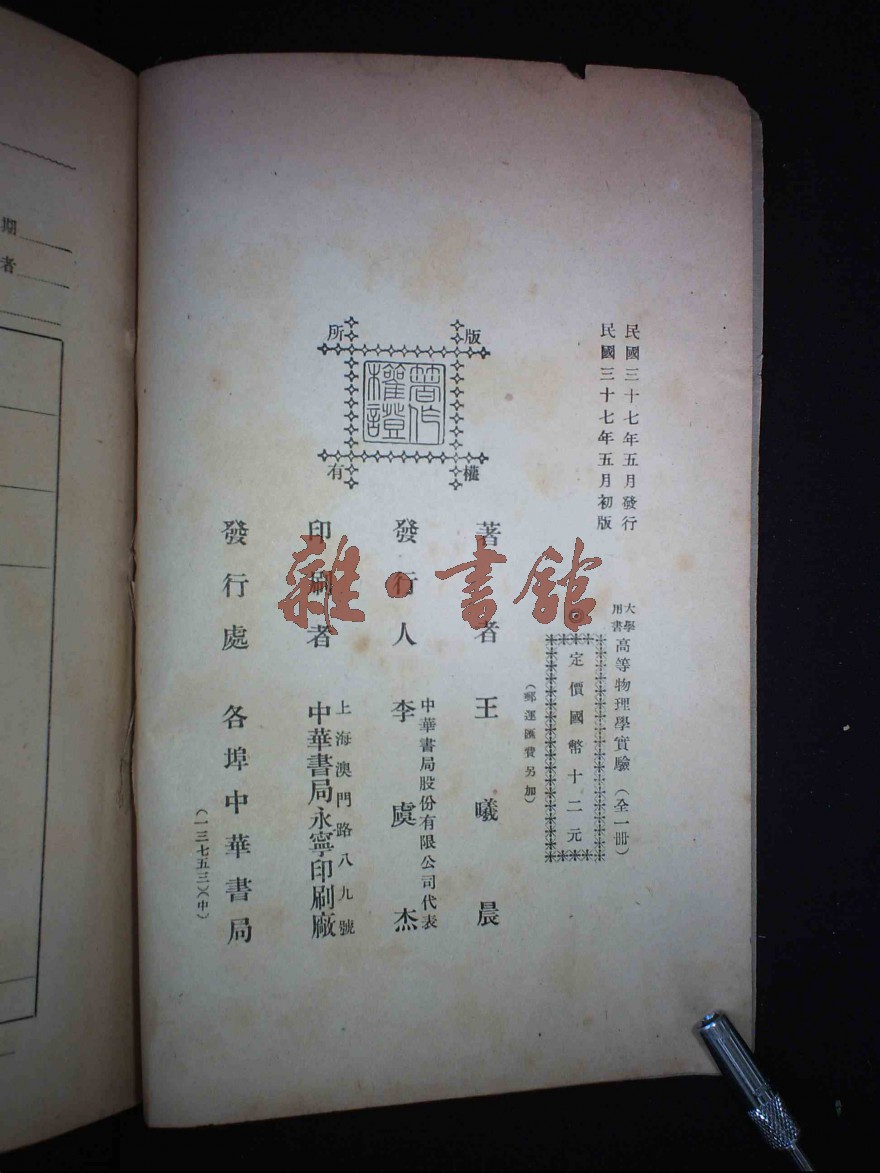 民國三十七年五月發行
民國三十七年五月初版
大學用書 高等物理學實驗（全一冊）
定價國幣十二元
（郵運匯費另加）
版權所有
著作權證
著者 王曦晨
中華書局股份有限公司代表
發行人 李虞杰
上海澳門路八九號
印刷者 中華書局永寧印刷廠
發行處 各埠中華書局
（一三七五三）（中）
雜·書館
期
者